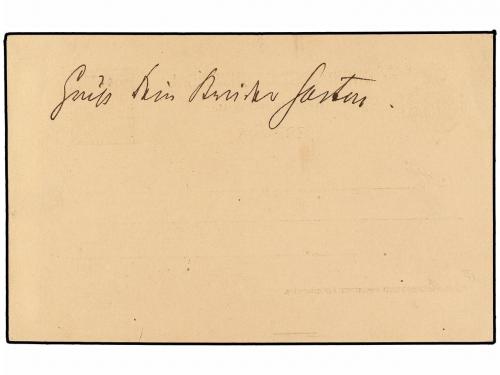 Gruß Dein Bruder Gaston.